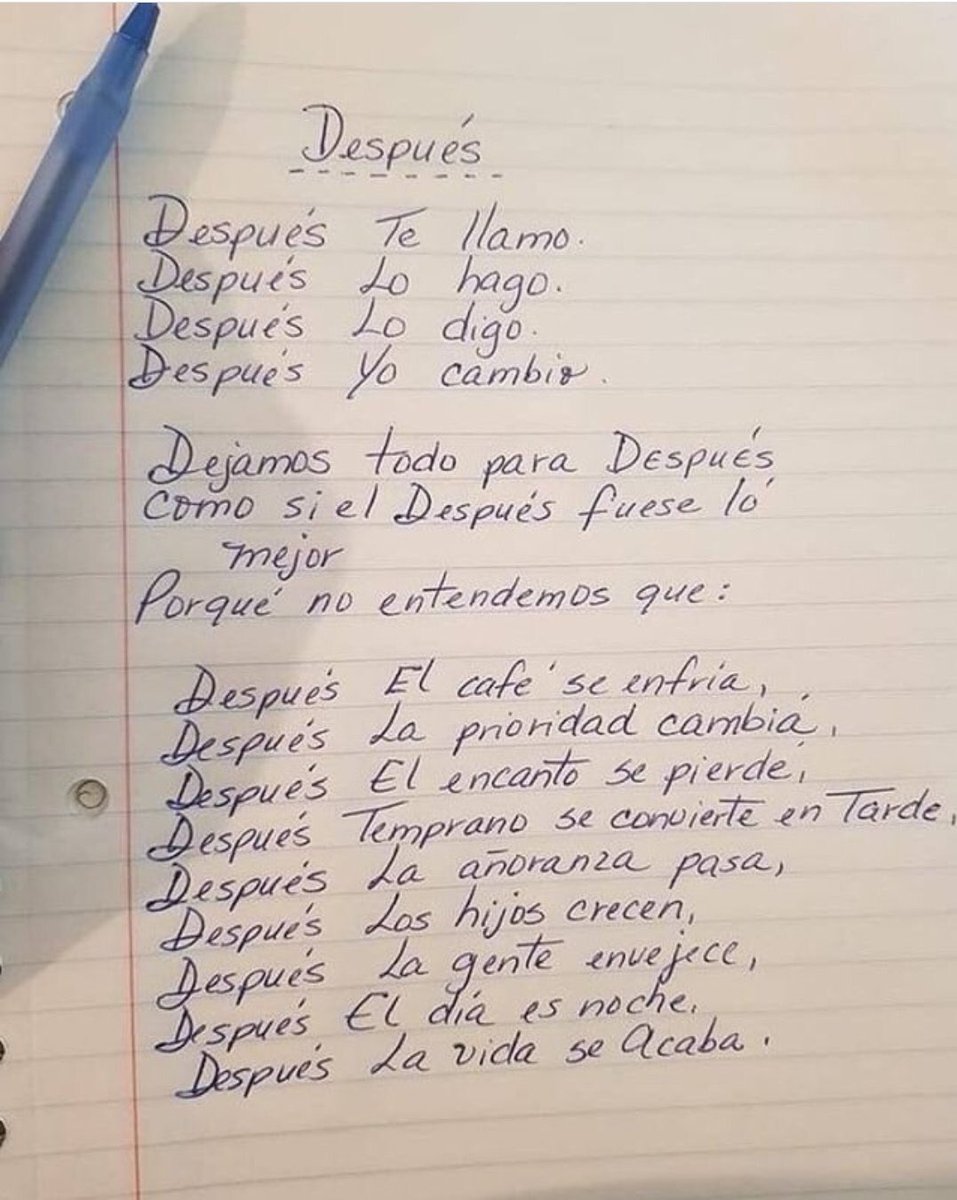 Después
Después Te llamo.
Después Lo hago.
Después Lo digo.
Después Yo cambio.
Dejamos todo para Después
Como si el Después fuese lo
mejor
Porqué no entendemos que:
Después El café se enfría,
Después La prioridad cambiá,
Después El encanto se pierde,
Después Temprano se convierte en Tarde,
Después La añoranza pasa,
Después Los hijos crecen,
Después La gente envejece,
Después El día es noche,
Después La vida se Acaba.